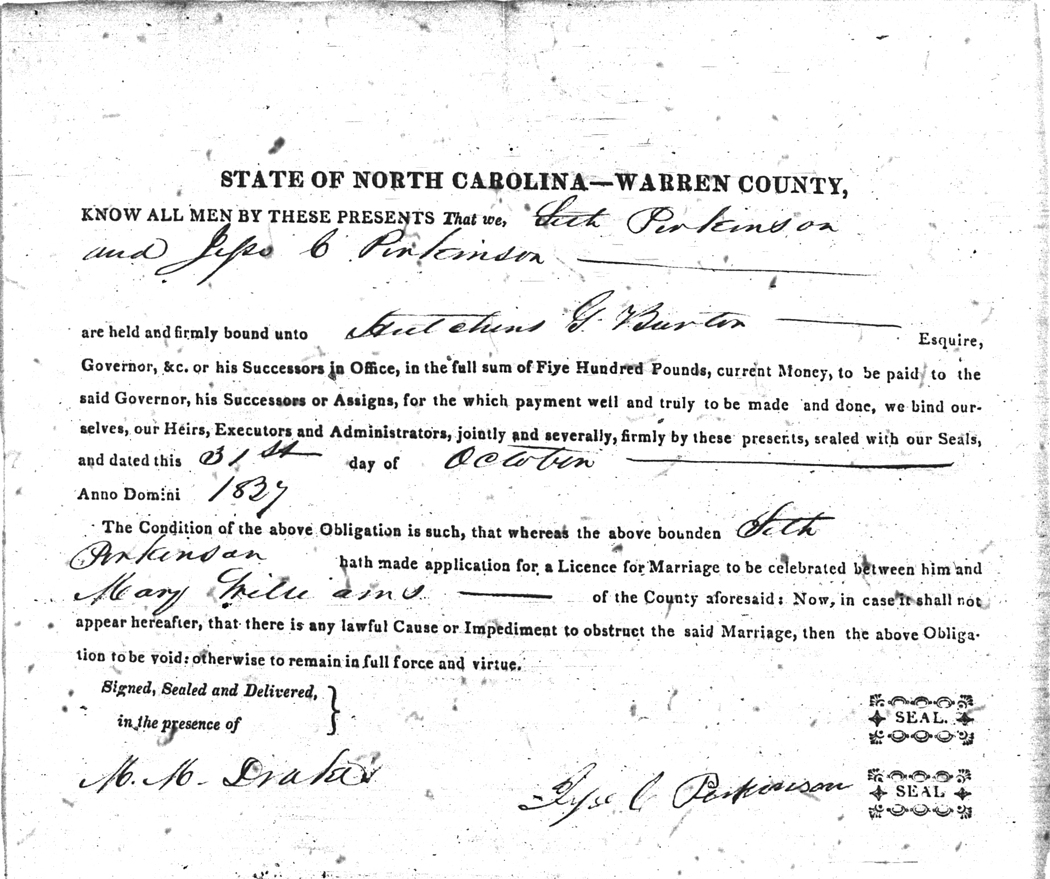 STATE OF NORTH CAROLINA—WARREN COUNTY,
KNOW ALL MEN BY THESE PRESENTS That we, Seth Perkinson
and Jesse C Perkinson
are held and firmly bound unto Hutchins G. Burton Esquire,
Governor, &c. or his Successors in Office, in the full sum of Five Hundred Pounds, current Money, to be paid to the
said Governor, his Successors or Assigns, for the which payment well and truly to be made and done, we bind our-
selves, our Heirs, Executors and Administrators, jointly and severally, firmly by these presents, sealed with our Seals,
and dated this 31st day of October
Anno Domini 1827
The Condition of the above Obligation is such, that whereas the above bounden Seth
Perkinson hath made application for a Licence for Marriage to be celebrated between him and
Mary Williams of the County aforesaid: Now, in case it shall not
appear hereafter, that there is any lawful Cause or Impediment to obstruct the said Marriage, then the above Obliga-
tion to be void: otherwise to remain in full force and virtue.
Signed, Sealed and Delivered,
in the presence of
SEAL.
M. M. Drake
Jesse C Perkinson SEAL